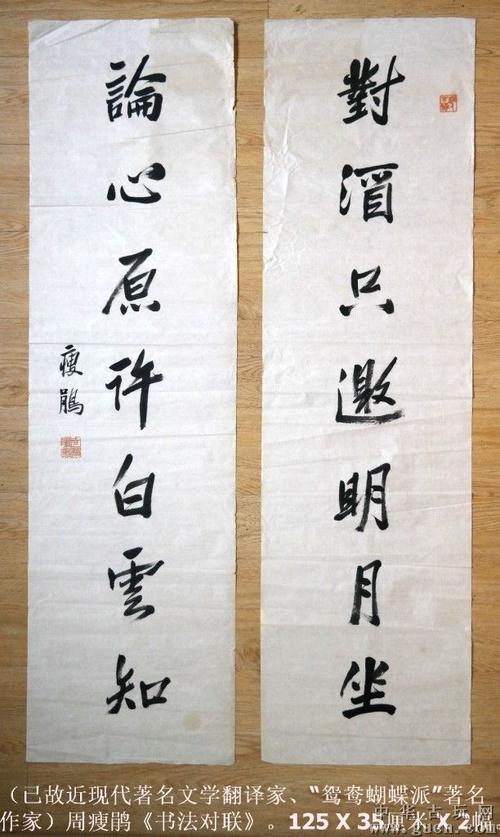 對酒只邀明月坐
論心原許白雲知
瘦鵑
（已故近现代著名文学翻译家、“鸳鸯蝴蝶派”著名
作家）周瘦鹃《书法对联》。125 X 35厘米 X 2幅
中华古玩网